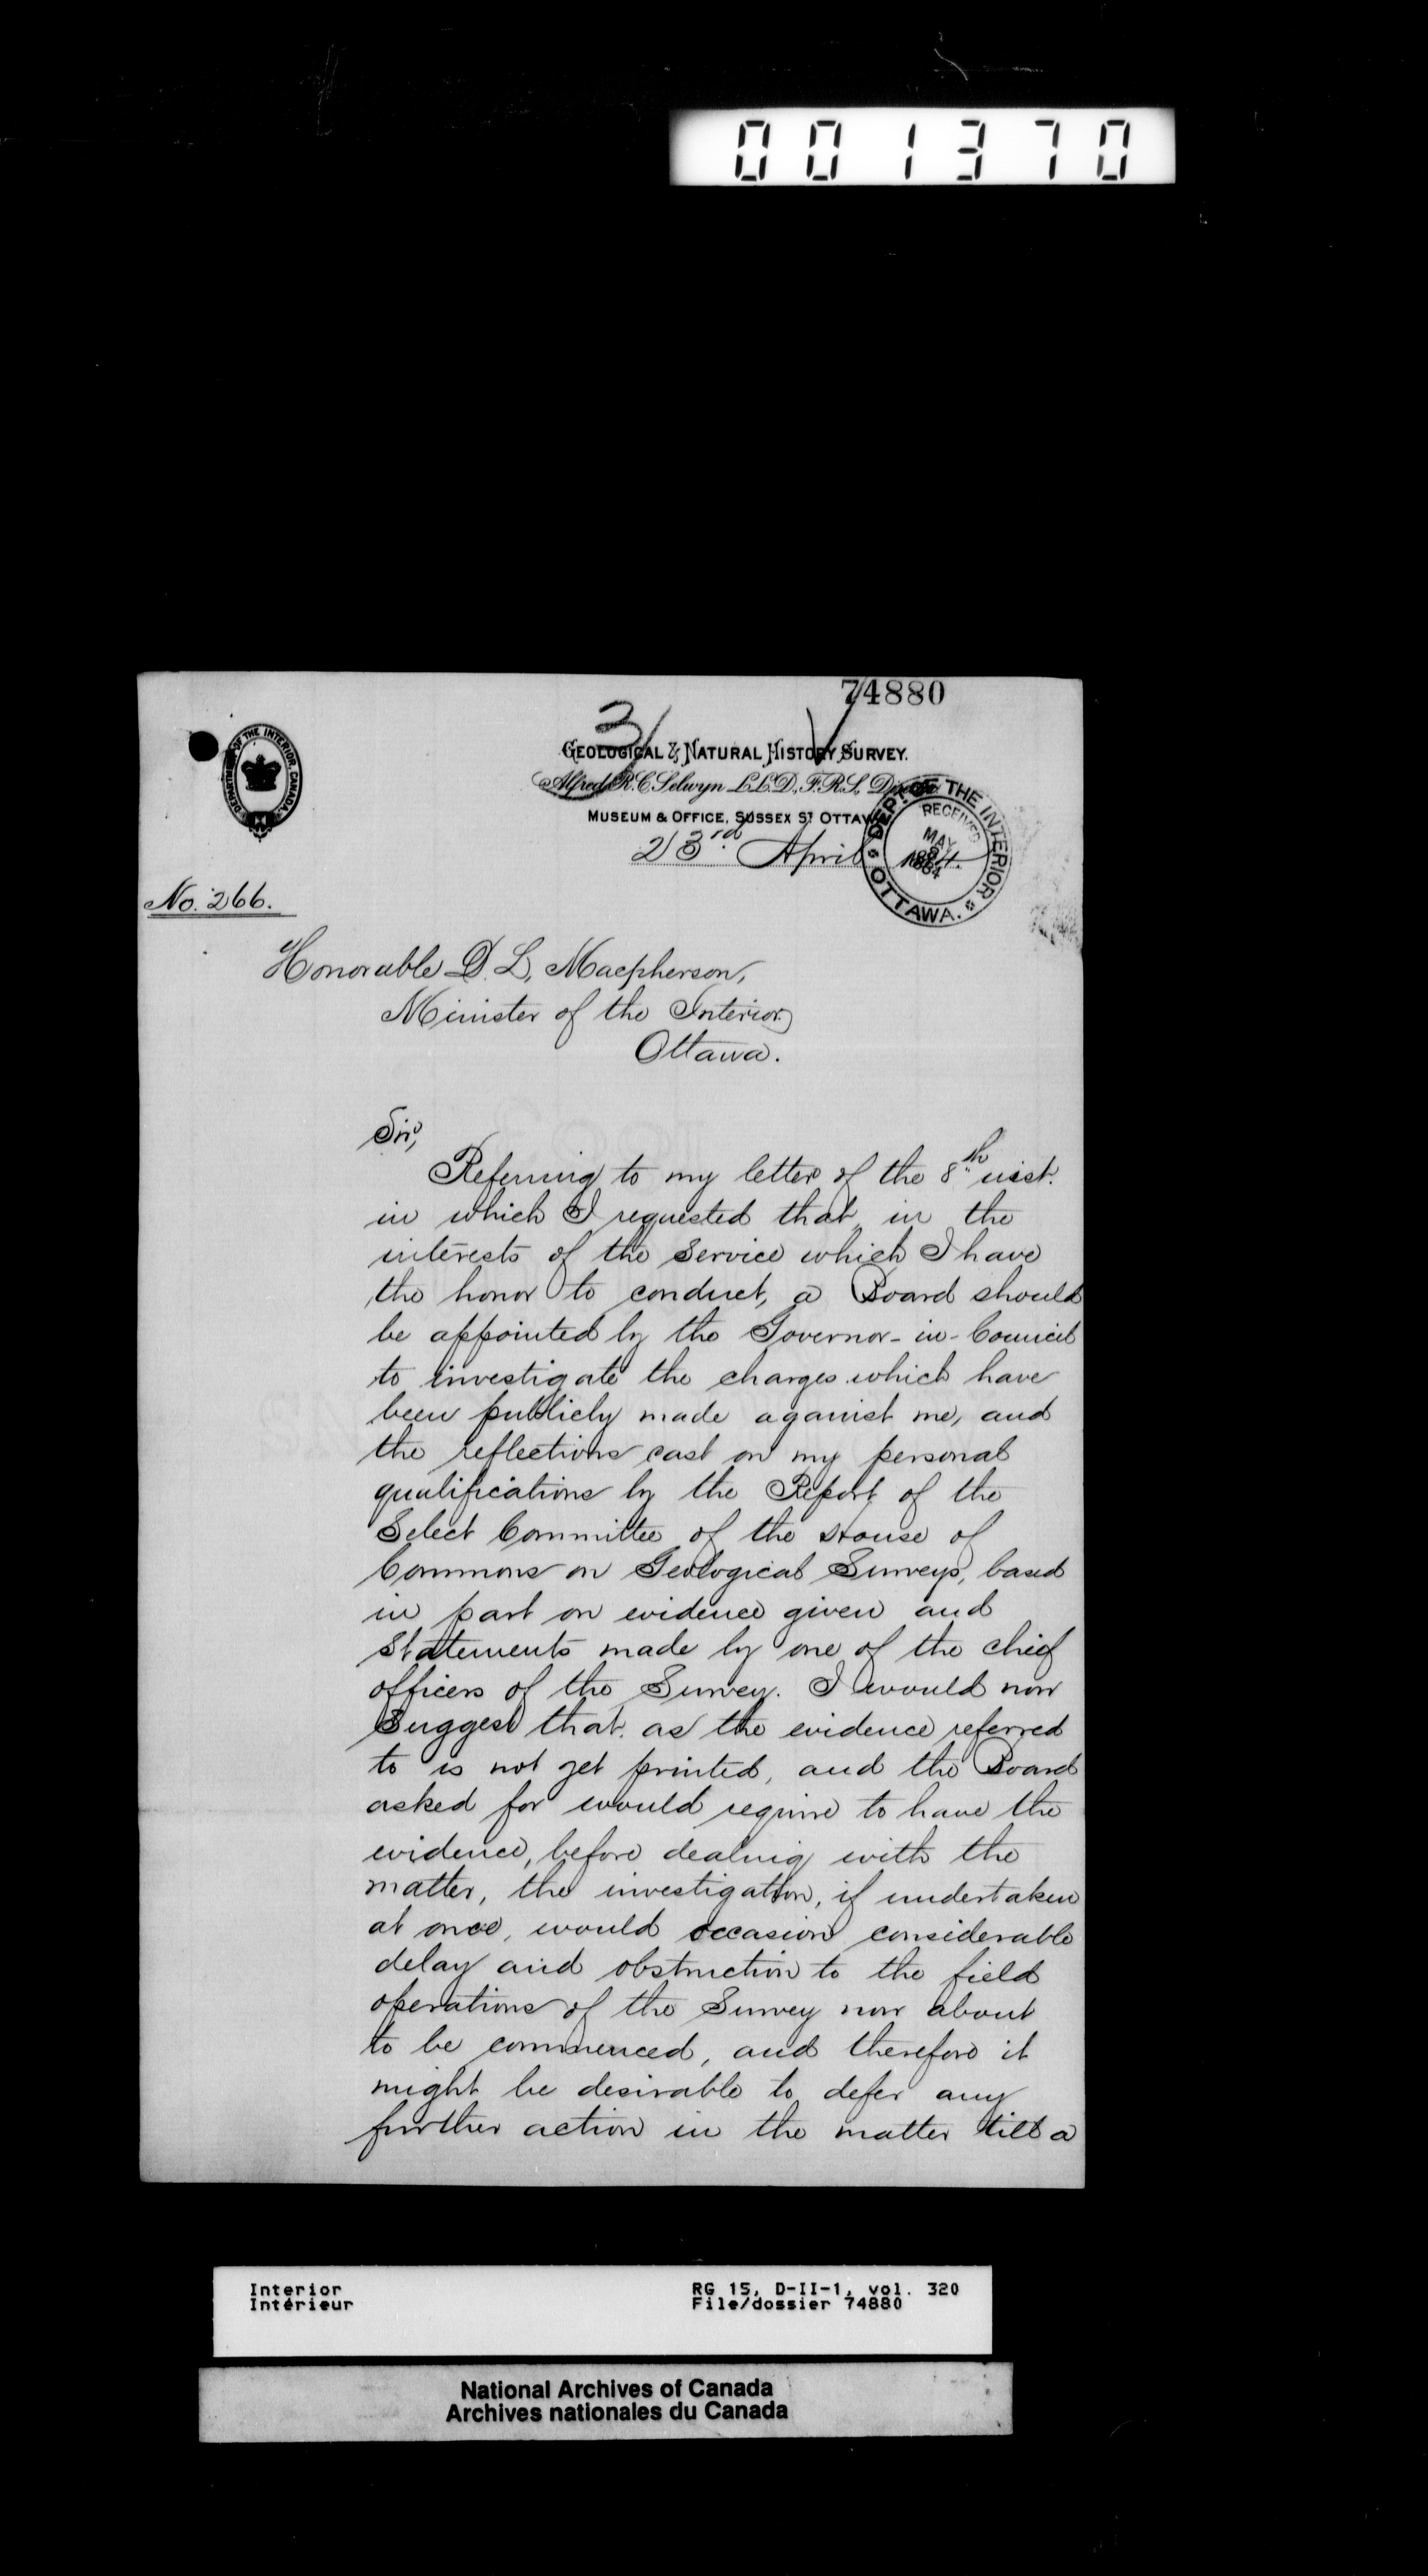 001370
74880
3/
GEOLOGICAL & NATURAL HISTORY SURVEY.
Alfred R. C. Selwyn L.L.D., F.R.S.,
MUSEUM & OFFICE, SUSSEX ST OTTAWA
DEPARTMENT OF THE INTERIOR, CANADA
DEPT. OF THE INTERIOR
RECEIVED
MAY
1884
OTTAWA.
23rd April
No. 266.
Honorable D. L. Macpherson,
Minister of the Interior
Ottawa.
Sir,
Referring to my letter of the 8th inst.
in which I requested that in the
interests of the Service which I have
the honor to conduct, a Board should
be appointed by the Governor-in-Council
to investigate the charges which have
been publicly made against me, and
the reflections cast on my personal
qualifications by the Report of the
Select Committee of the House of
Commons on Geological Surveys, based
in part on evidence given and
statements made by one of the chief
officers of the Survey. I would now
suggest that as the evidence referred
to is not yet printed, and the Board
asked for would require to have the
evidence, before dealing with the
matter, the investigation, if undertaken
at once, would occasion considerable
delay and obstruction to the field
operations of the Survey now about
to be commenced, and therefore it
might be desirable to defer any
further action in the matter till a
Interior
Intérieur
RG 15, D-II-1, vol. 320
File/dossier 74880
National Archives of Canada
Archives nationales du Canada